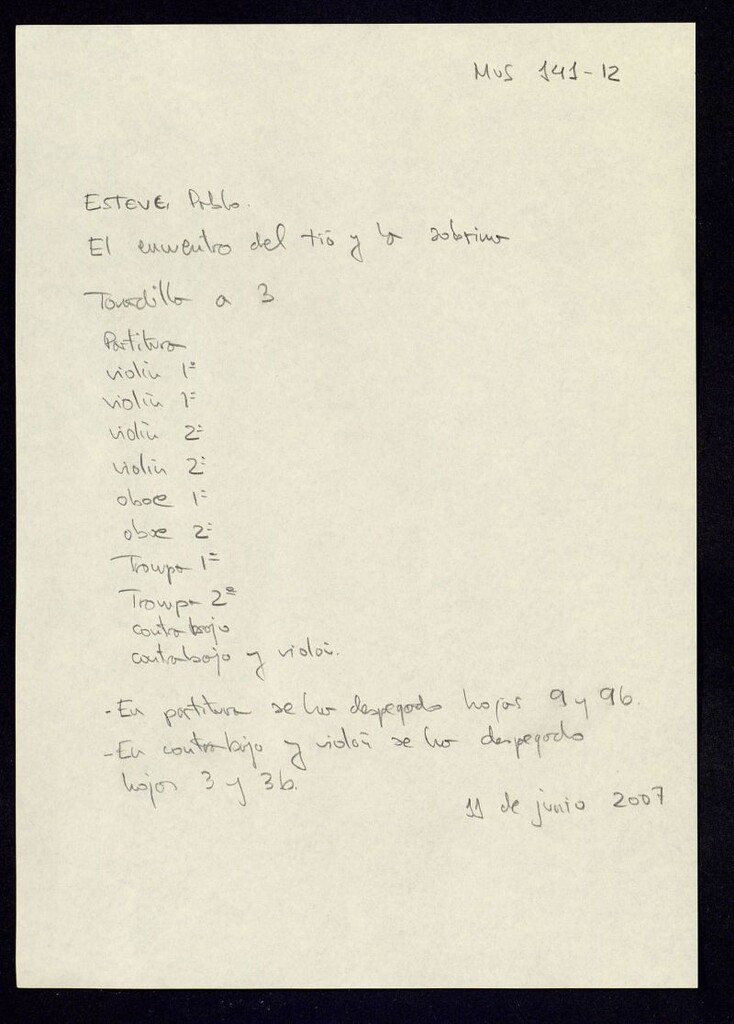 MUS 141-12
ESTEVE, Pablo.
El encuentro del tío y la sobrina
Tonadilla a 3
Partitura
violín 1º
violín 1º
violín 2º
violín 2º
oboe 1º
oboe 2º
Trompa 1ª
Trompa 2ª
contrabajo
contrabajo y violón.
- En partitura se ha despegado hojas 9 y 9b.
- En contrabajo y violón se ha despegado
hojas 3 y 3b.
11 de junio 2007